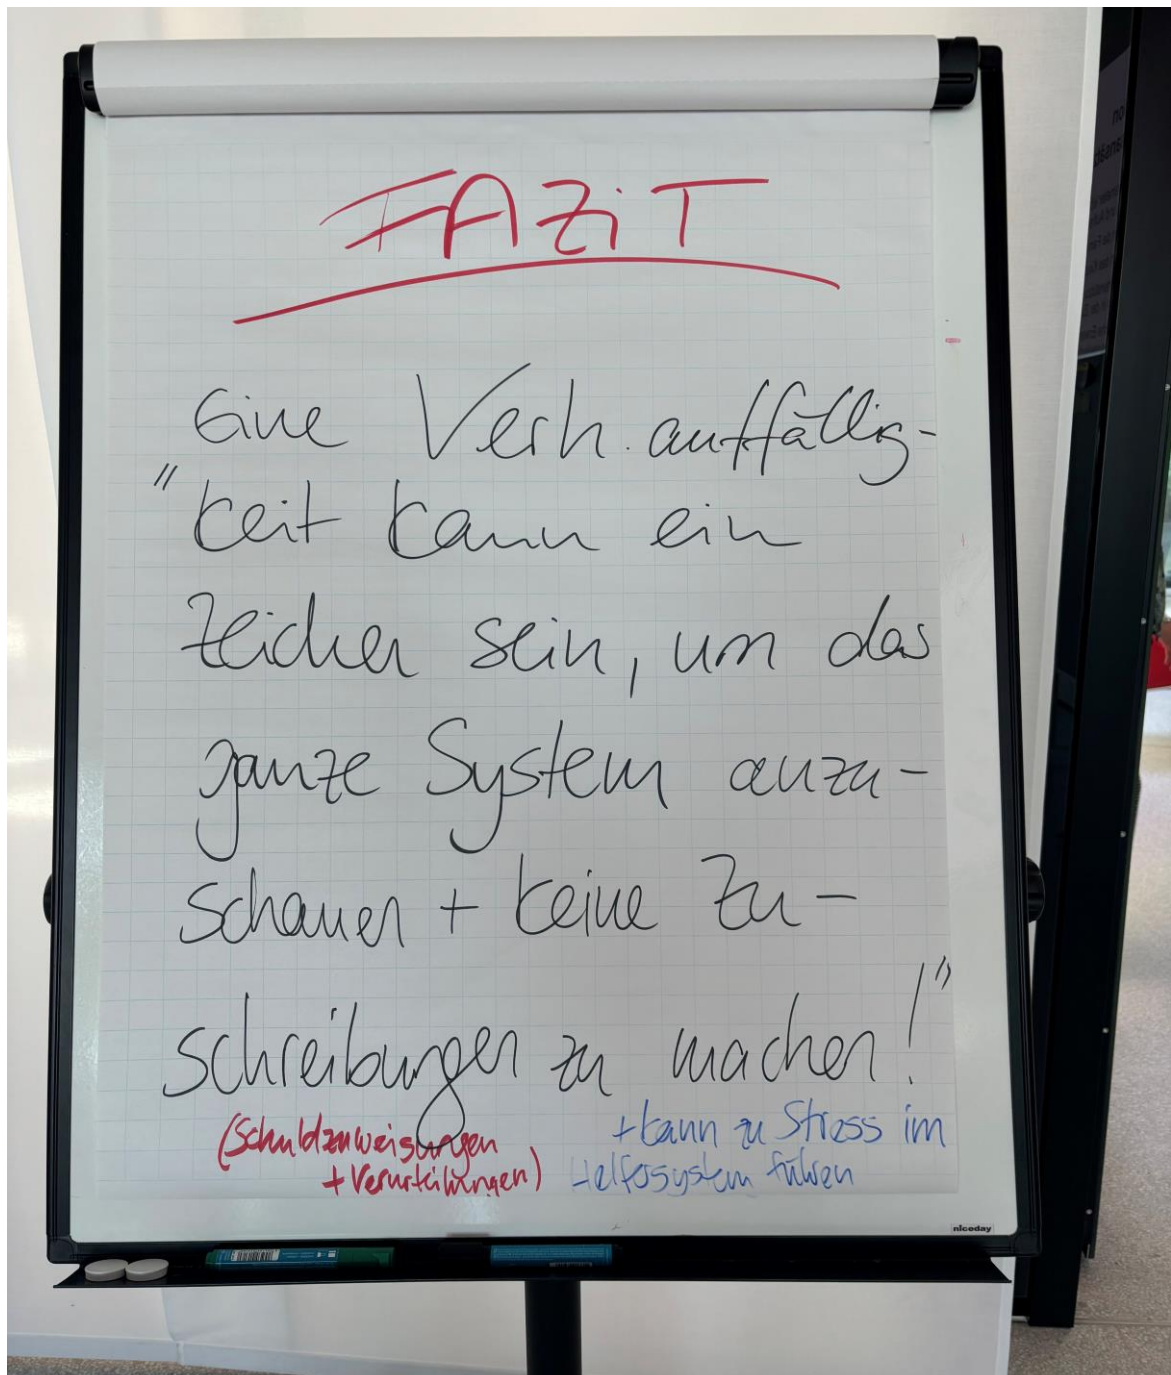 FAZiT
Eine Verh. auffällig-
"keit kann ein
Zeichen sein, um das
ganze System anzu-
schauen + keine Zu-
schreibungen zu machen!"
(Schuldzuweisungen
+ Verurteilungen)
+ kann zu Stress im
Helfersystem führen
nicoday